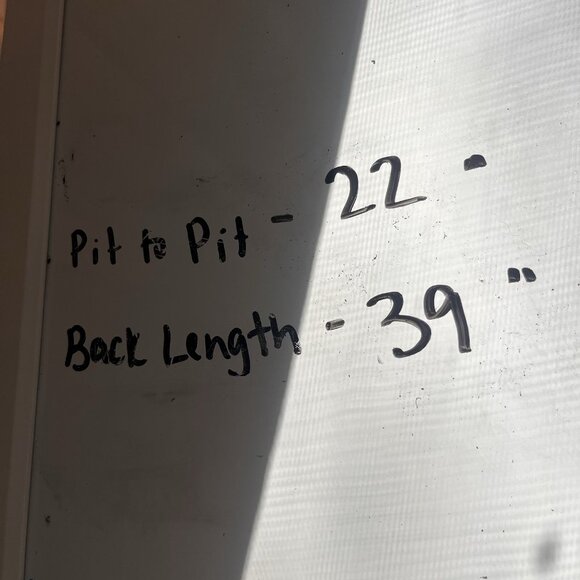 Pit to Pit - 22 "
Back Length - 39 "